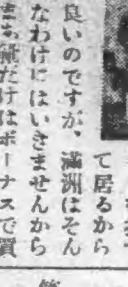 て居るから
良いのですが、滿洲はそん
なわけにはいきませんから
まあ量だけはボーナスで買